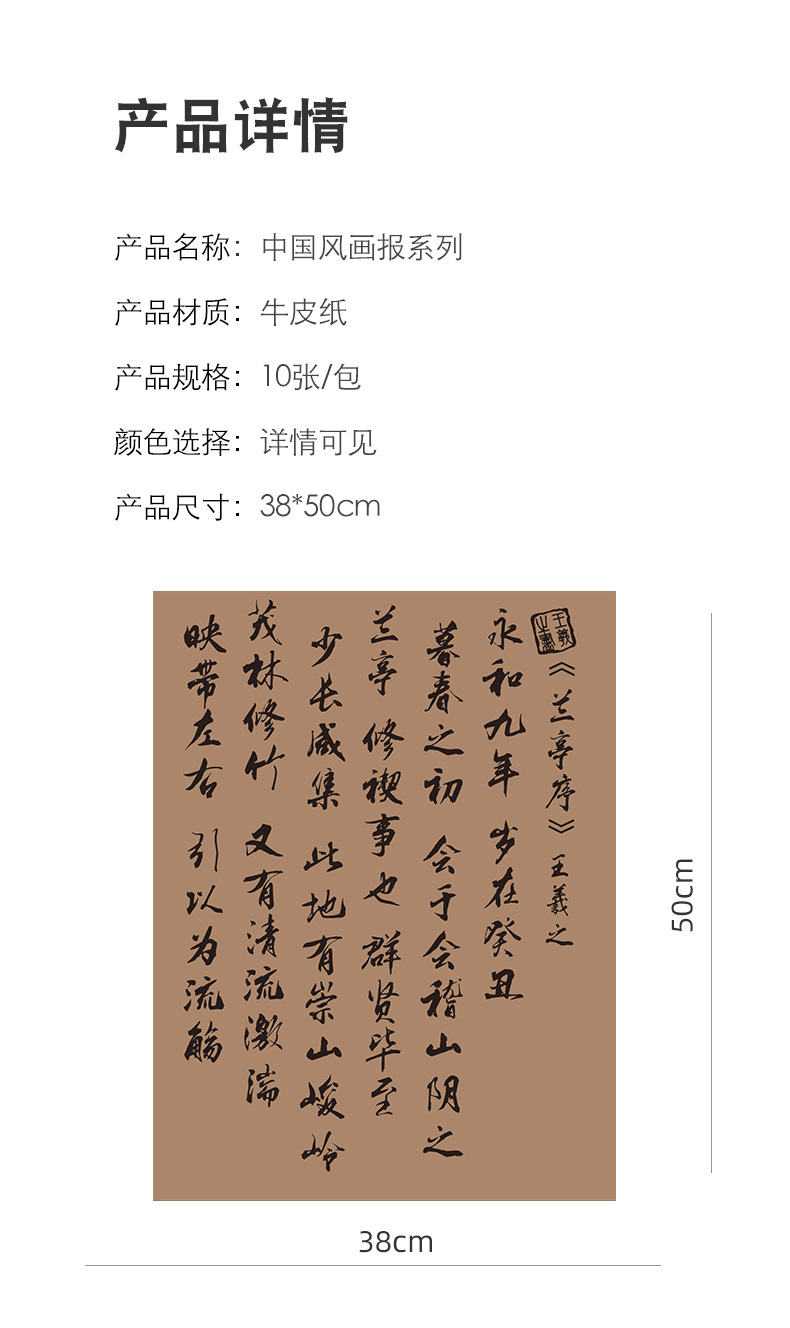 产品详情
产品名称：中国风画报系列
产品材质：牛皮纸
产品规格：10张/包
颜色选择：详情可见
产品尺寸：38*50cm
《兰亭序》王羲之
永和九年 岁在癸丑
暮春之初 会于会稽山阴之
兰亭 修禊事也 群贤毕至
少长咸集 此地有崇山峻岭
茂林修竹 又有清流激湍
映带左右 引以为流觞
50cm
38cm